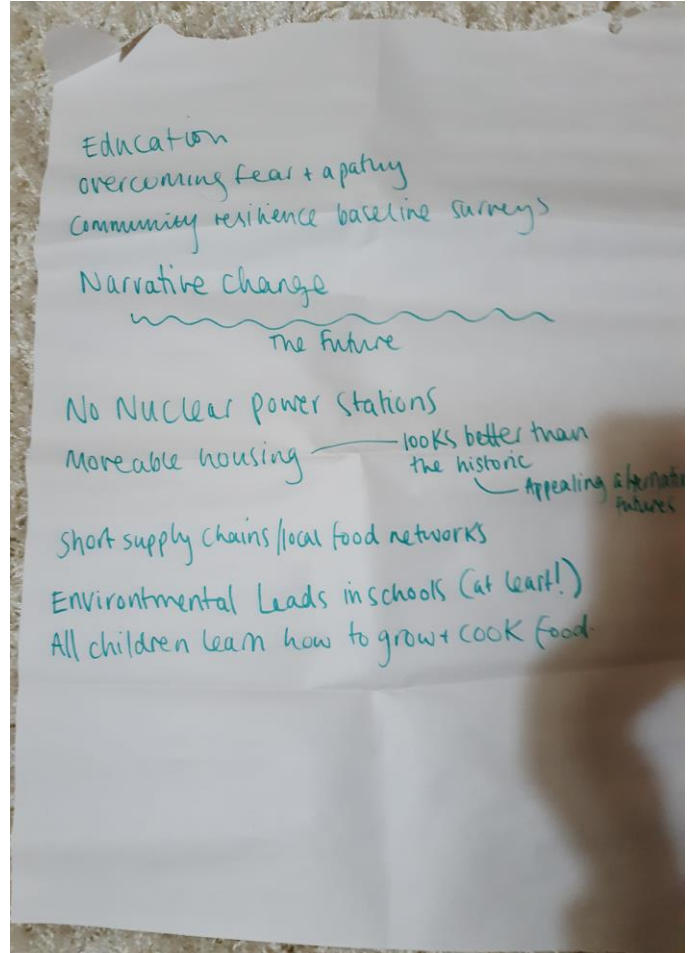 Education
overcoming fear + apathy
Community resilience baseline surveys
Narrative change
The Future
No Nuclear power stations
Moveable housing — looks better than
the historic
Appealing alternative
futures
short supply chains/local food networks
Environtmental Leads in schools (at least!)
All children learn how to grow + cook food.